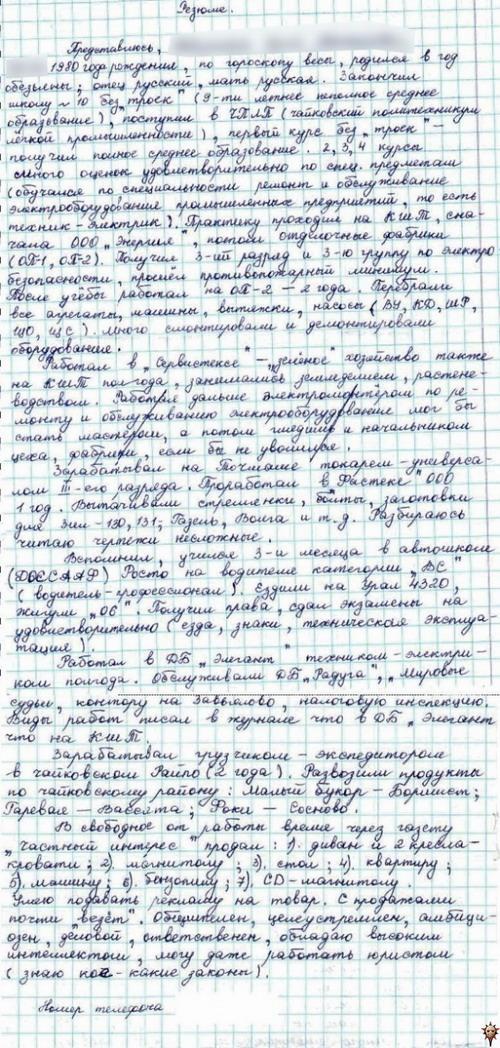 Резюме.
Представлюсь,
1980 года рождения, по гороскопу весы, родился в год
обезьяны; отец русский, мать русская. Закончил
школу ~ 10 без „троек" (9-ти летнее неполное среднее
образование), поступил в ЧПЛП (чайковский политехникум
лёгкой промышленности), первый курс без „троек" —
получил полное среднее образование. 2, 3, 4 курсы
много оценок удовлетворительно по спец. предметам
(обучался по специальности ремонт и обслуживание
электрооборудования промышленных предприятий, то есть
техник-электрик). Практику проходил на КШТ, сна-
чала ООО „Энергия", потом отделочные фабрики
(ОП-1, ОП-2). Получил 3-ий разряд и 3-ю группу по электро
безопасности, прошёл противопожарный минимум.
После учёбы работал на ОП-2 — 2 года. Перебрали
все агрегаты, машины, вытяжки, насосы (ВУ, КД, ШР,
ШО, ЩС). Много смонтировали и демонтировали
оборудования.
Работал в „Сервистексе" — „зелёное" хозяйство также
на КШТ полгода, занимались земледелием, растене-
водством. Работая дальше электромонтёром по ре-
монту и обслуживанию электрооборудования мог бы
стать мастером, а потом глядишь и начальником
цеха, фабрики, если бы не уволили.
Зарабатывал на Точмаше токарем-универса-
лом III-его разряда. Проработал в „Растеке" ООО
1 год. Вытачивали стремянки, болты, заготовки
для Зил-130, 131; Газель, Волга и т.д. Разбираюсь
читаю чертежи несложные.
Вспомнил, учился 3-и месяца в автошколе
(ДОССААФ) Росто на водителя категории „ВС"
(водитель-профессионал). Ездили на Урал 4320,
жигули „06". Получил права, сдал экзамены на
удовлетворительно (езда, знаки, техническая эксплуа-
тация).
Работал в ДБ „Элегант" техником-электри-
ком полгода. Обслуживали ДБ „Радуга", „Мировые
судьи", контору на Завьялово, налоговую инспекцию.
Виды работ писал в журнале что в ДБ „Элегант"
что на КШТ.
Зарабатывал грузчиком-экспедитором
в чайковском Райпо (2 года). Развозили продукты
по чайковскому району: Малый Букор — Бормист;
Гаревая — Вассята; Фоки — Сосново.
В свободное от работы время через газету
„частный интерес" продал: 1). диван и 2 кресла-
кровати; 2). магнитолу; 3). стол; 4). квартиру;
5). машину; 6). бензопилу; 7). CD-магнитолу.
Умею подавать рекламу на товар. С продажами
почти „везёт". Общителен, целеустремлен, амбици-
озен, деловой, ответственен, обладаю высоким
интеллектом, могу даже работать юристом
(знаю кое-какие законы).
Номер телефона